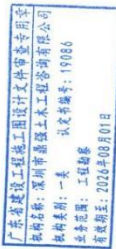 广东省建设工程施工图设计文件审查专用章
机构名称：深圳市鼎强土木工程咨询有限公司
机构类别：一类 认定书编号：19086
业务范围：工程勘察
有效期：2026年08月01日